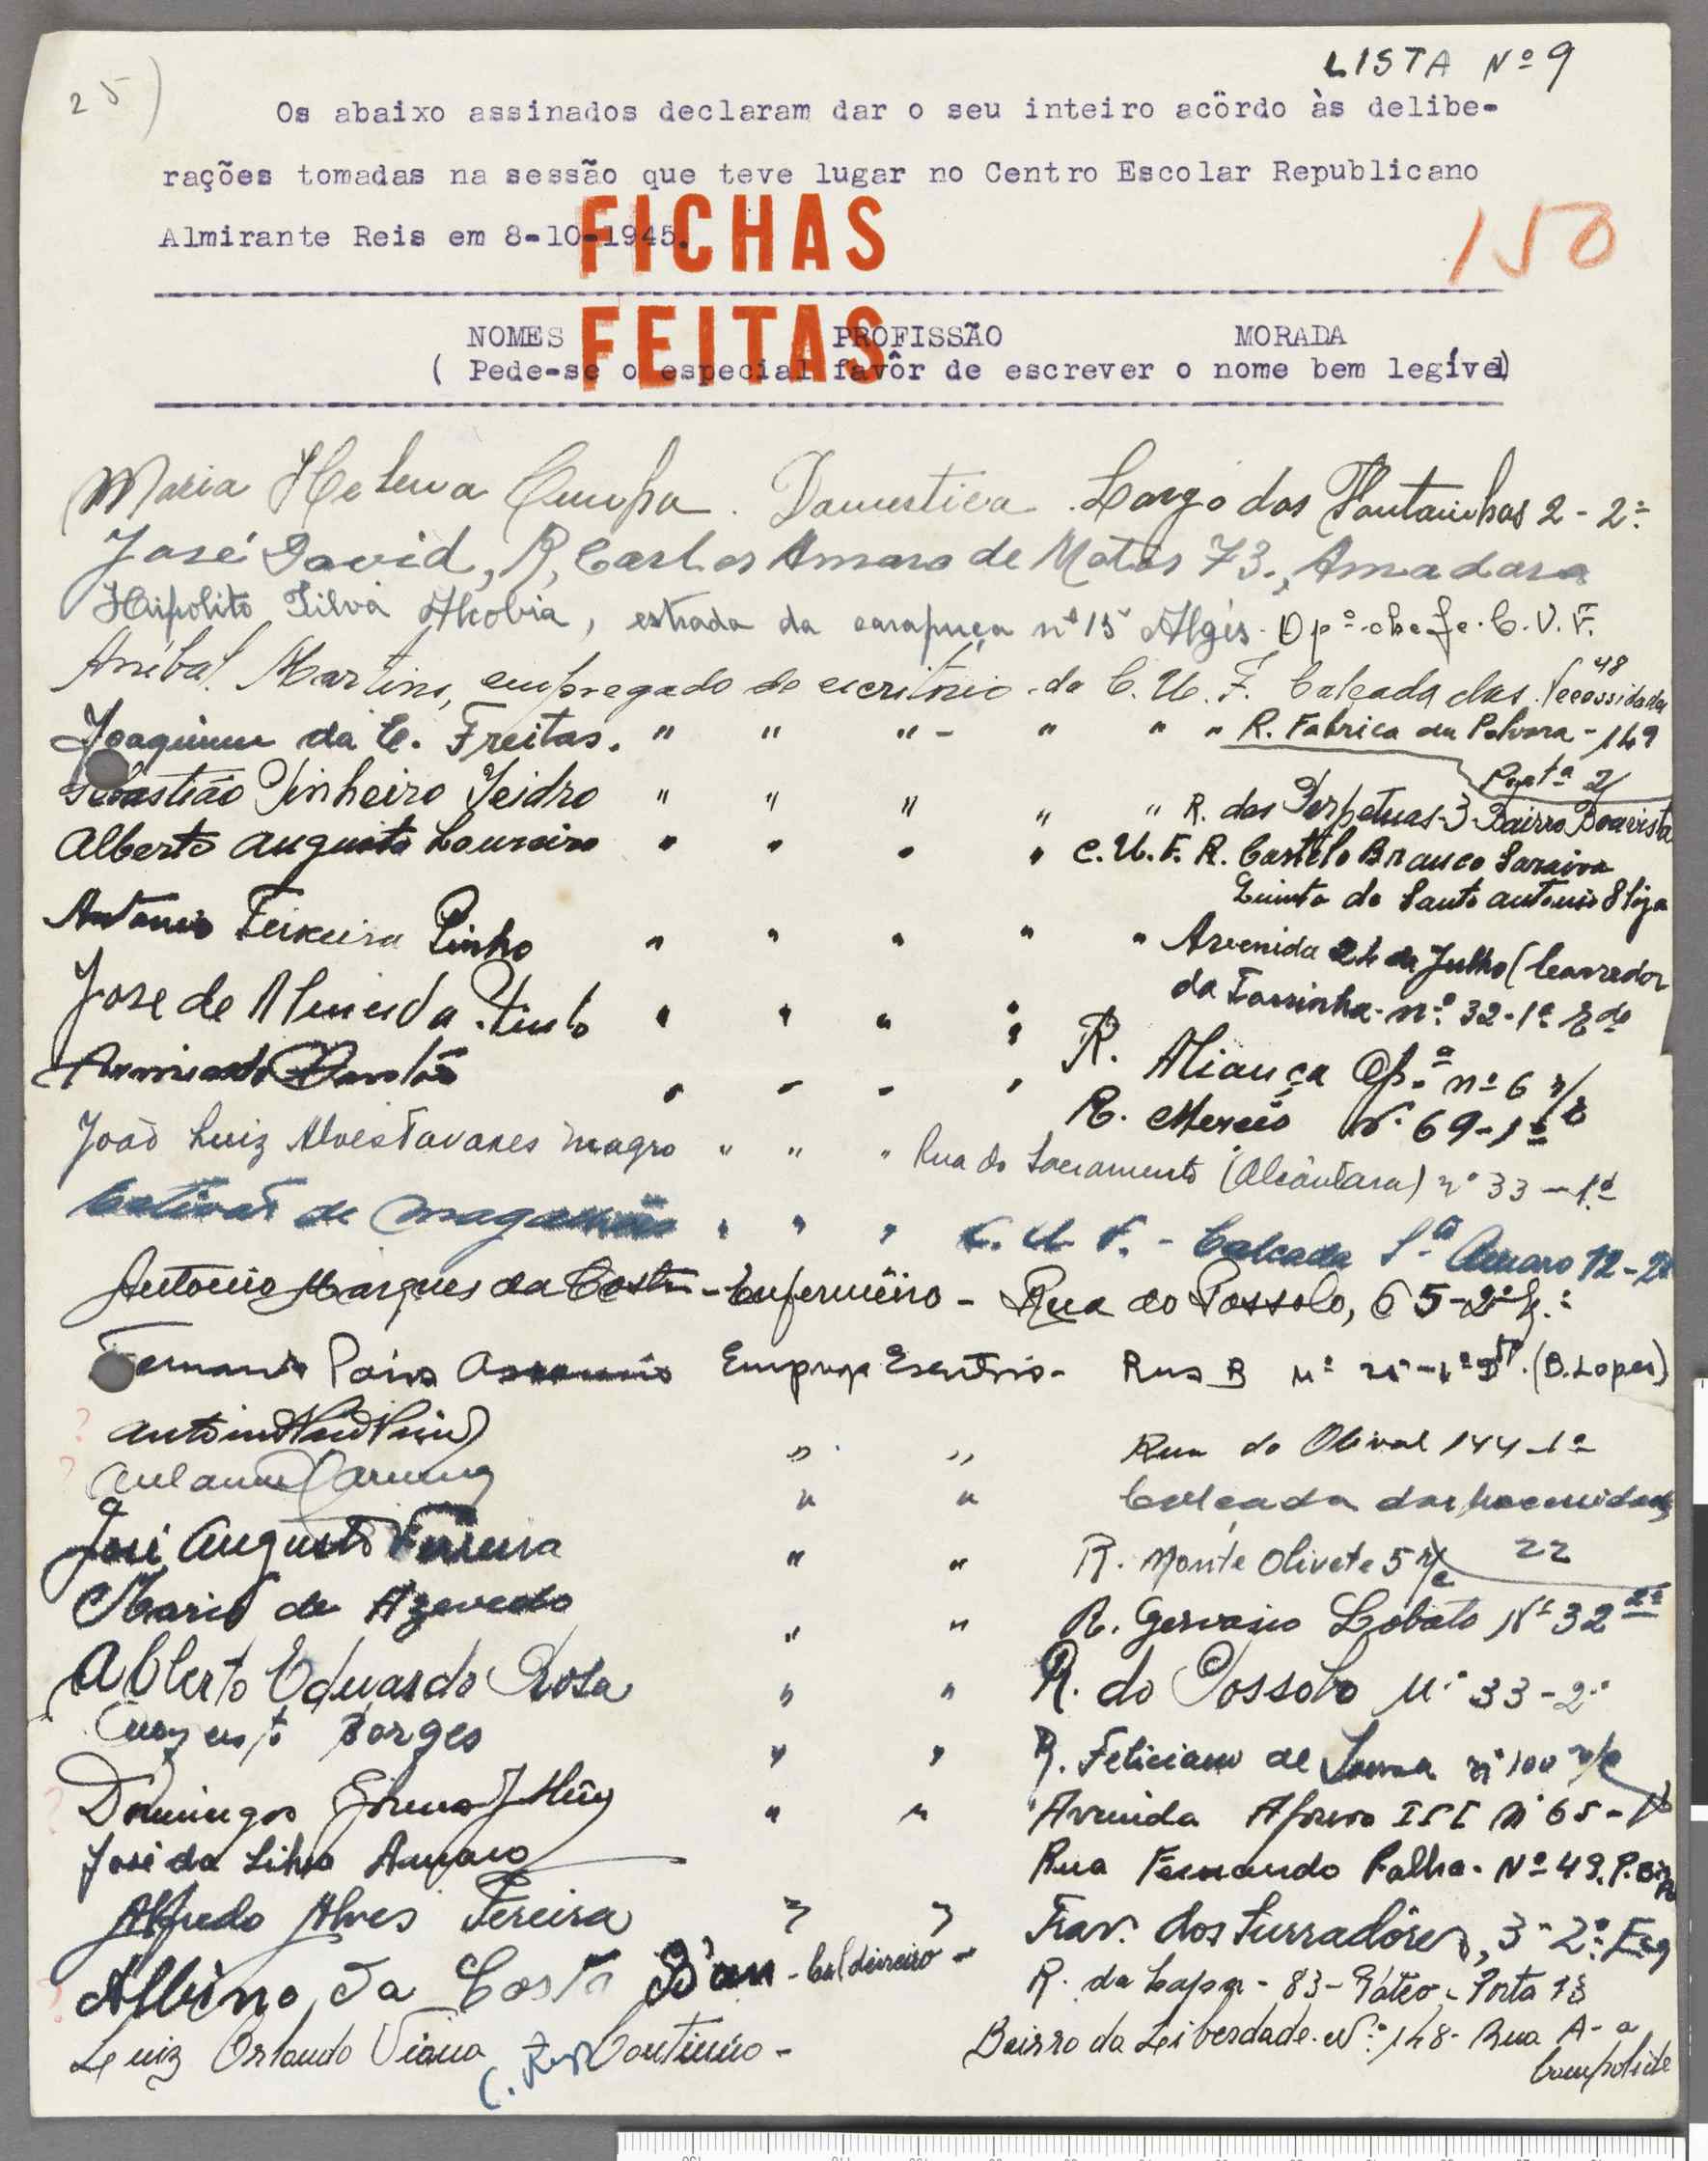 25)
LISTA Nº 9
Os abaixo assinados declaram dar o seu inteiro acôrdo às delibe-
rações tomadas na sessão que teve lugar no Centro Escolar Republicano
Almirante Reis em 8-10-1945.
FICHAS
FEITAS
150
NOMES PROFISSÃO MORADA
( Pede-se o especial favôr de escrever o nome bem legível)
Maria Helena Cunha. Domestica. Largo das Fontainhas 2-2º
José David, R. Carlos Amaro de Matos 73., Amadora
Hipolito Silva Alcobia, estrada da carapuça nº 15 Algés. Opº-chefe. C.U.F.
Anibal Martins, empregado de escritório da C.U.F. Calçada das Necessidades 48
Joaquim da C. Freitas. " " " - " " " R. Fabrica da Polvora-149
Portª 2
Sebastião Pinheiro Izidro " " " " " R. das Perpetuas-3-Bairro Boavista
Alberto Augusto Loureiro " " " " C.U.F. R. Castelo Branco Saraiva
Quinta de Santo Antonio
Antonio Teixeira Pinho " " " " " Avenida 24 de Julho (Corredor
da Torrinha-nº 32-1º Edº
José de Almeida Pinto " " " " R. Aliança Opª nº 6 r/c
" " " " R. Nº 69-1º
João Luiz Alves Tavares Magro " " " Rua do Sacramento (Alcântara) nº 33-1º
de Magalhães " " " C.U.F. - Calçada Stº Amaro 12-2º
Antonio Marques da Costa - Enfermeiro - Rua do Possolo, 65-2º
Fernando Paiva Empreg Escritório - Rua B Nº (B. Lopes)
? " " Rua do Olival 144-1º
? " " Calçada das Necessidades
22
José Augusto Ferreira " " R. Monte Olivete 5 r/c
Mario de Azevedo " " R. Gervasio Lobato Nº 32 2º
Alberto Eduardo Rosa " " R. do Possolo Nº 33-2º
Augusto Borges " " R. Feliciano de Sousa nº 100 r/c
? Domingos " " Avenida Afonso III Nº 65-
José da Silva Amaro Rua Fernando Palha-Nº 49.
Alfredo Alves Pereira " " Trav. dos Surradôres, 3-2º Esq
? Albino da Costa - Caldeireiro - R. da - 83 - Páteo - Porta 13
Luiz Orlando Viana Continúo - Bairro da Leiberdade. Nº 148- Rua A-a
Campolide